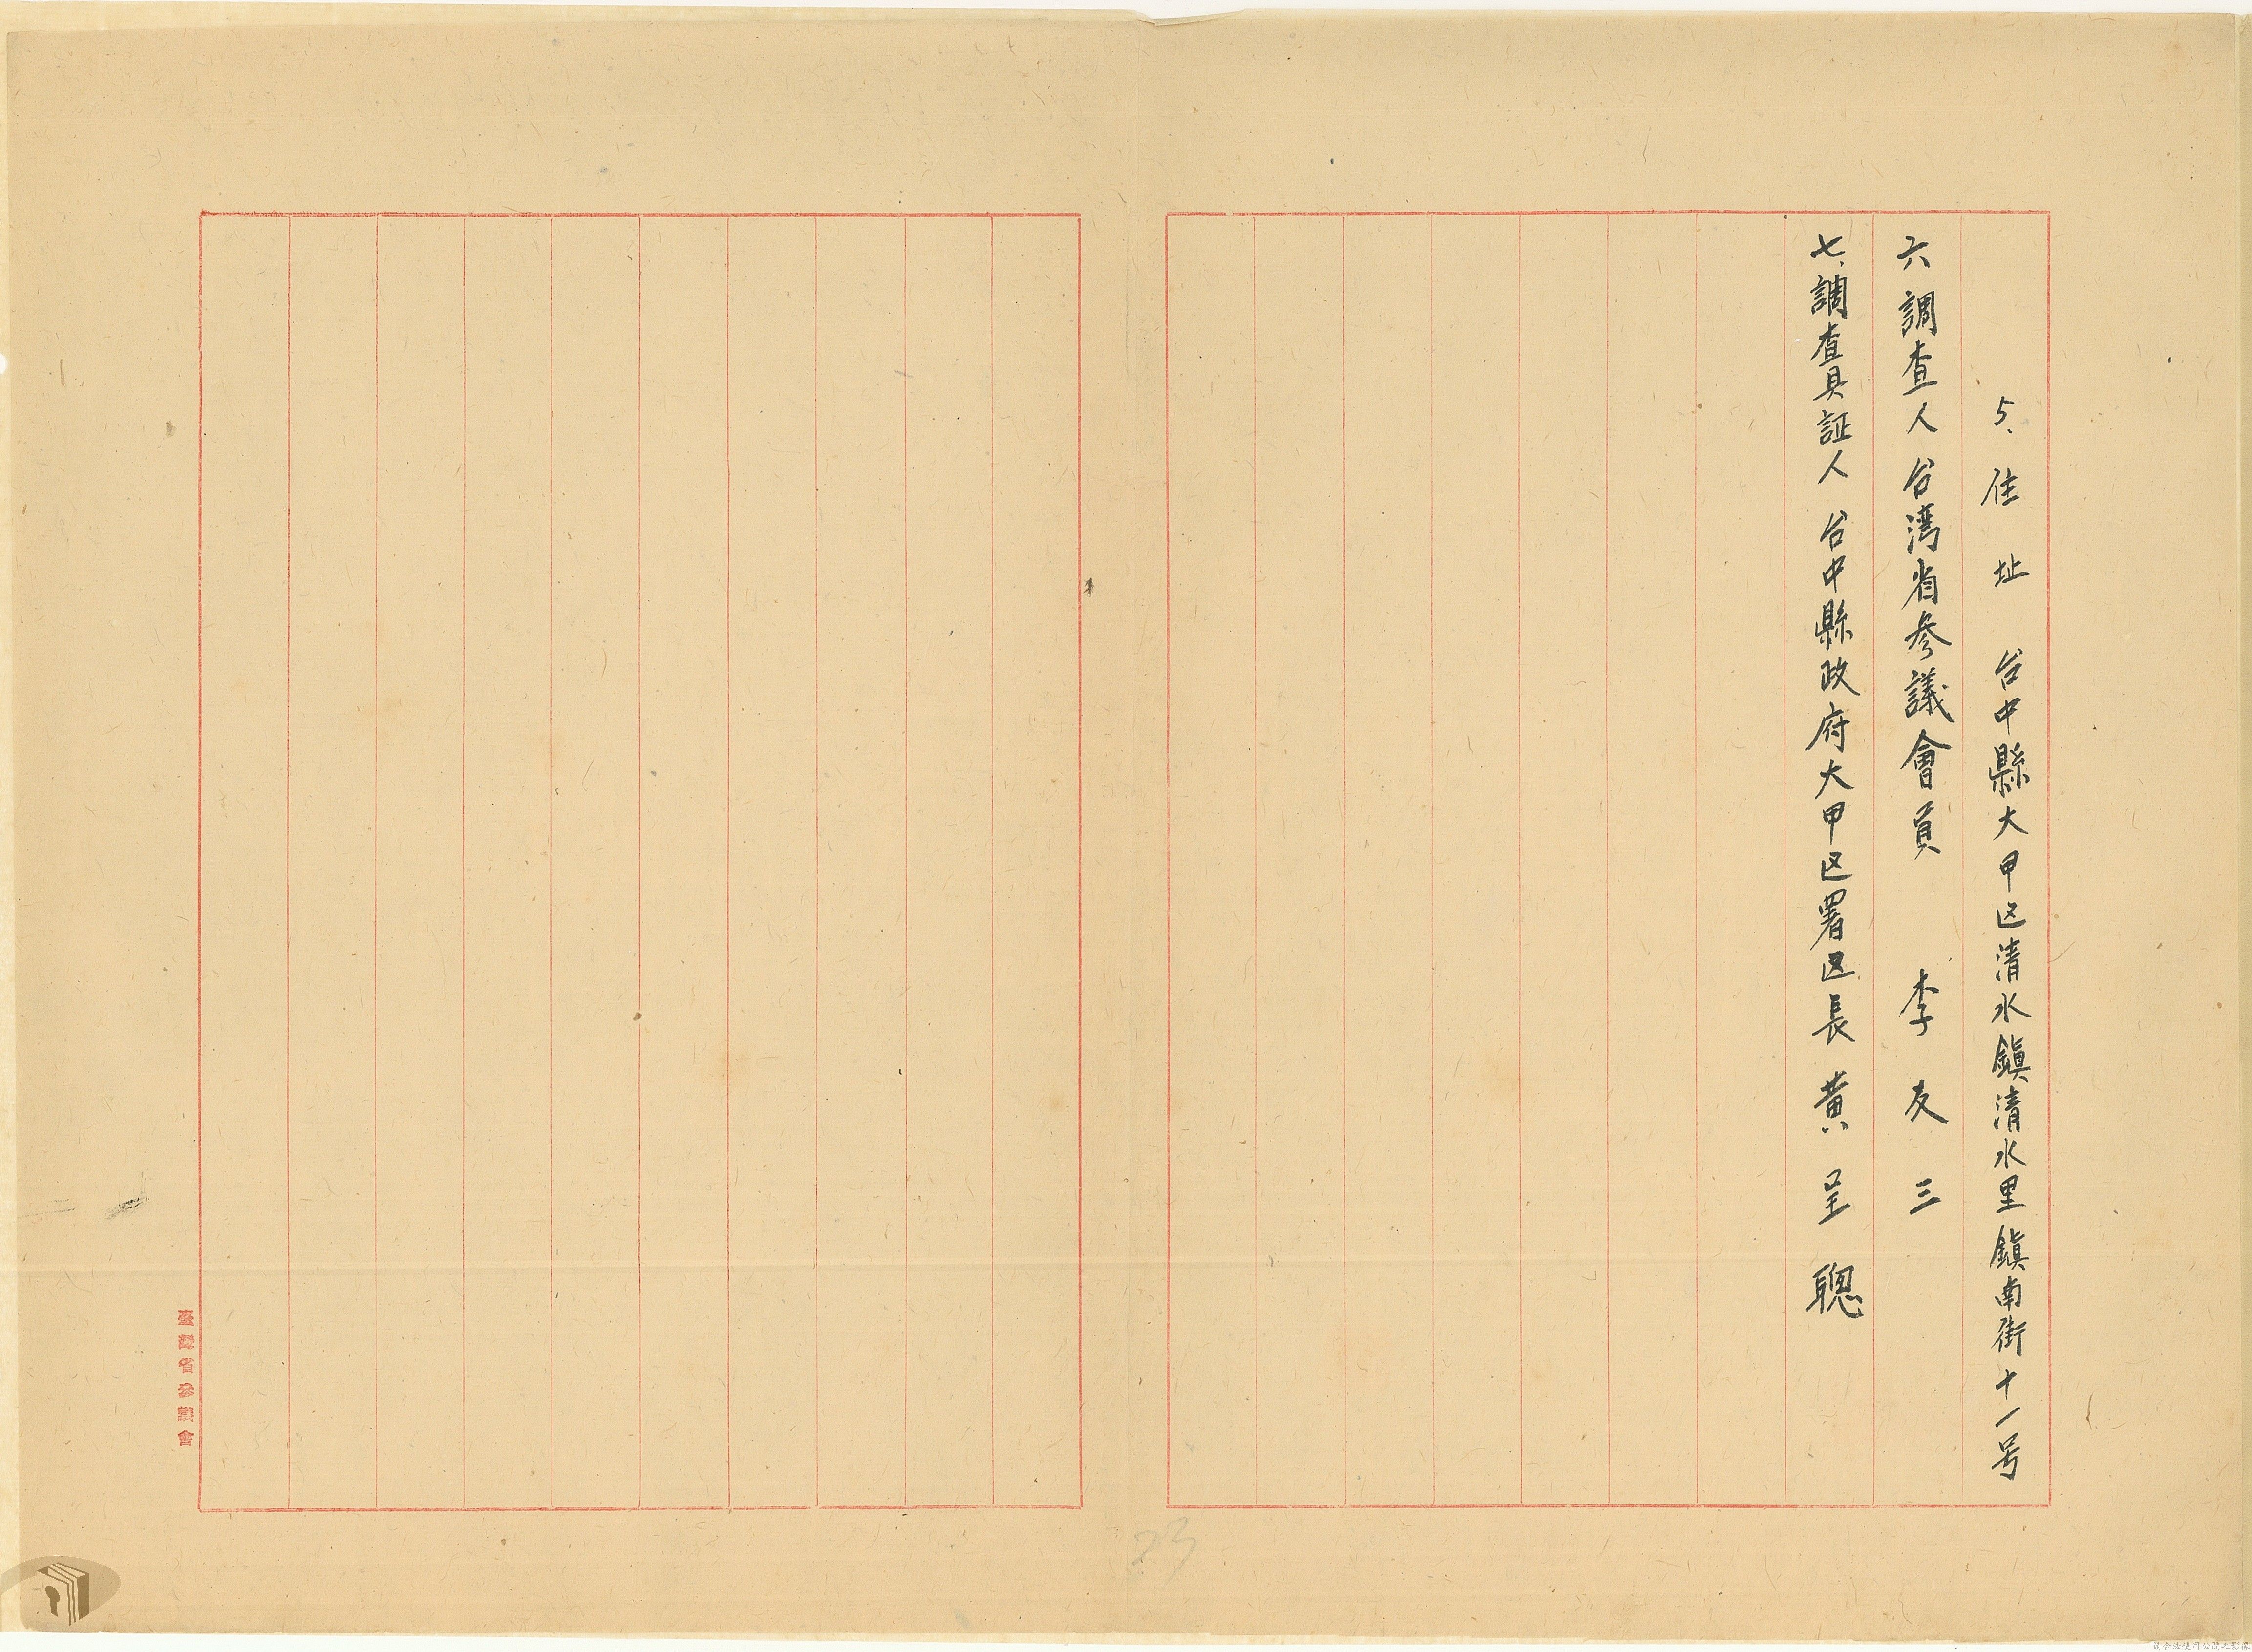 5、住址 台中縣大甲区清水鎮清水里鎮南街十一号
六 調查人 台湾省參議會員 李友三
七、調查具証人 台中縣政府大甲区署区長 黄呈聰
臺灣省參議會
23
請合法使用公開之影像